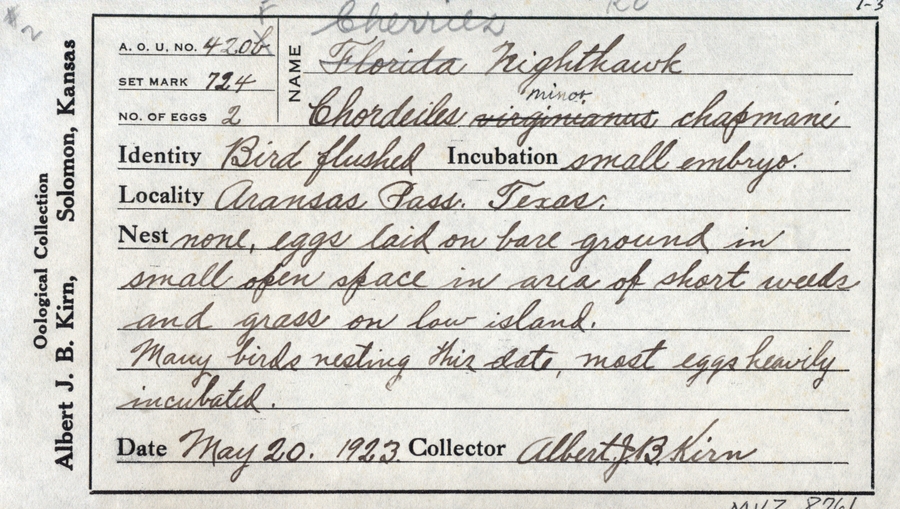 Cherrie's
1-3
A. O. U. NO. 420b
SET MARK 724
NO. OF EGGS 2
NAME
Florida Nighthawk
minor
Chordeiles virginianus chapmani
Identity Bird flushed Incubation small embryo.
Locality Aransas Pass. Texas.
Nest none, eggs laid on bare ground in
small open space in area of short weeds
and grass on low island.
Many birds nesting this date, most eggs heavily
incubated.
Date May 20. 1923. Collector Albert J. B. Kirn
Oological Collection
Albert J. B. Kirn, Solomon, Kansas
MVZ 8761